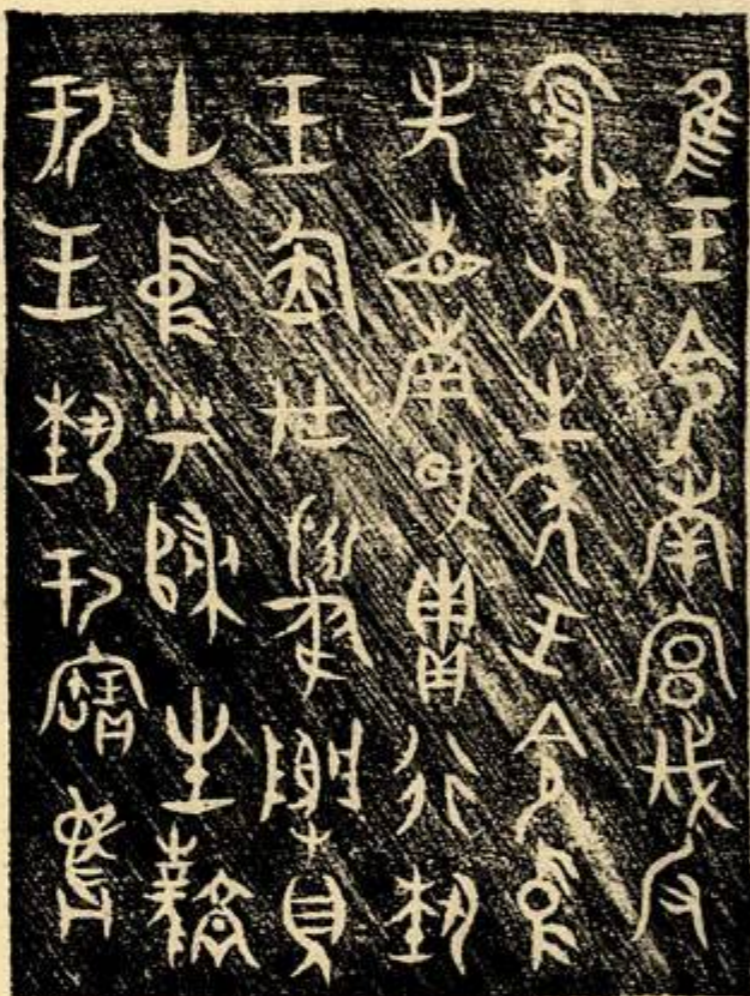 隹王令南宮伐反
虎方之年王令中
先省南或貫行埶
王㕇在夔𨺅真
山中乎歸生鳳
于王埶于寶彝